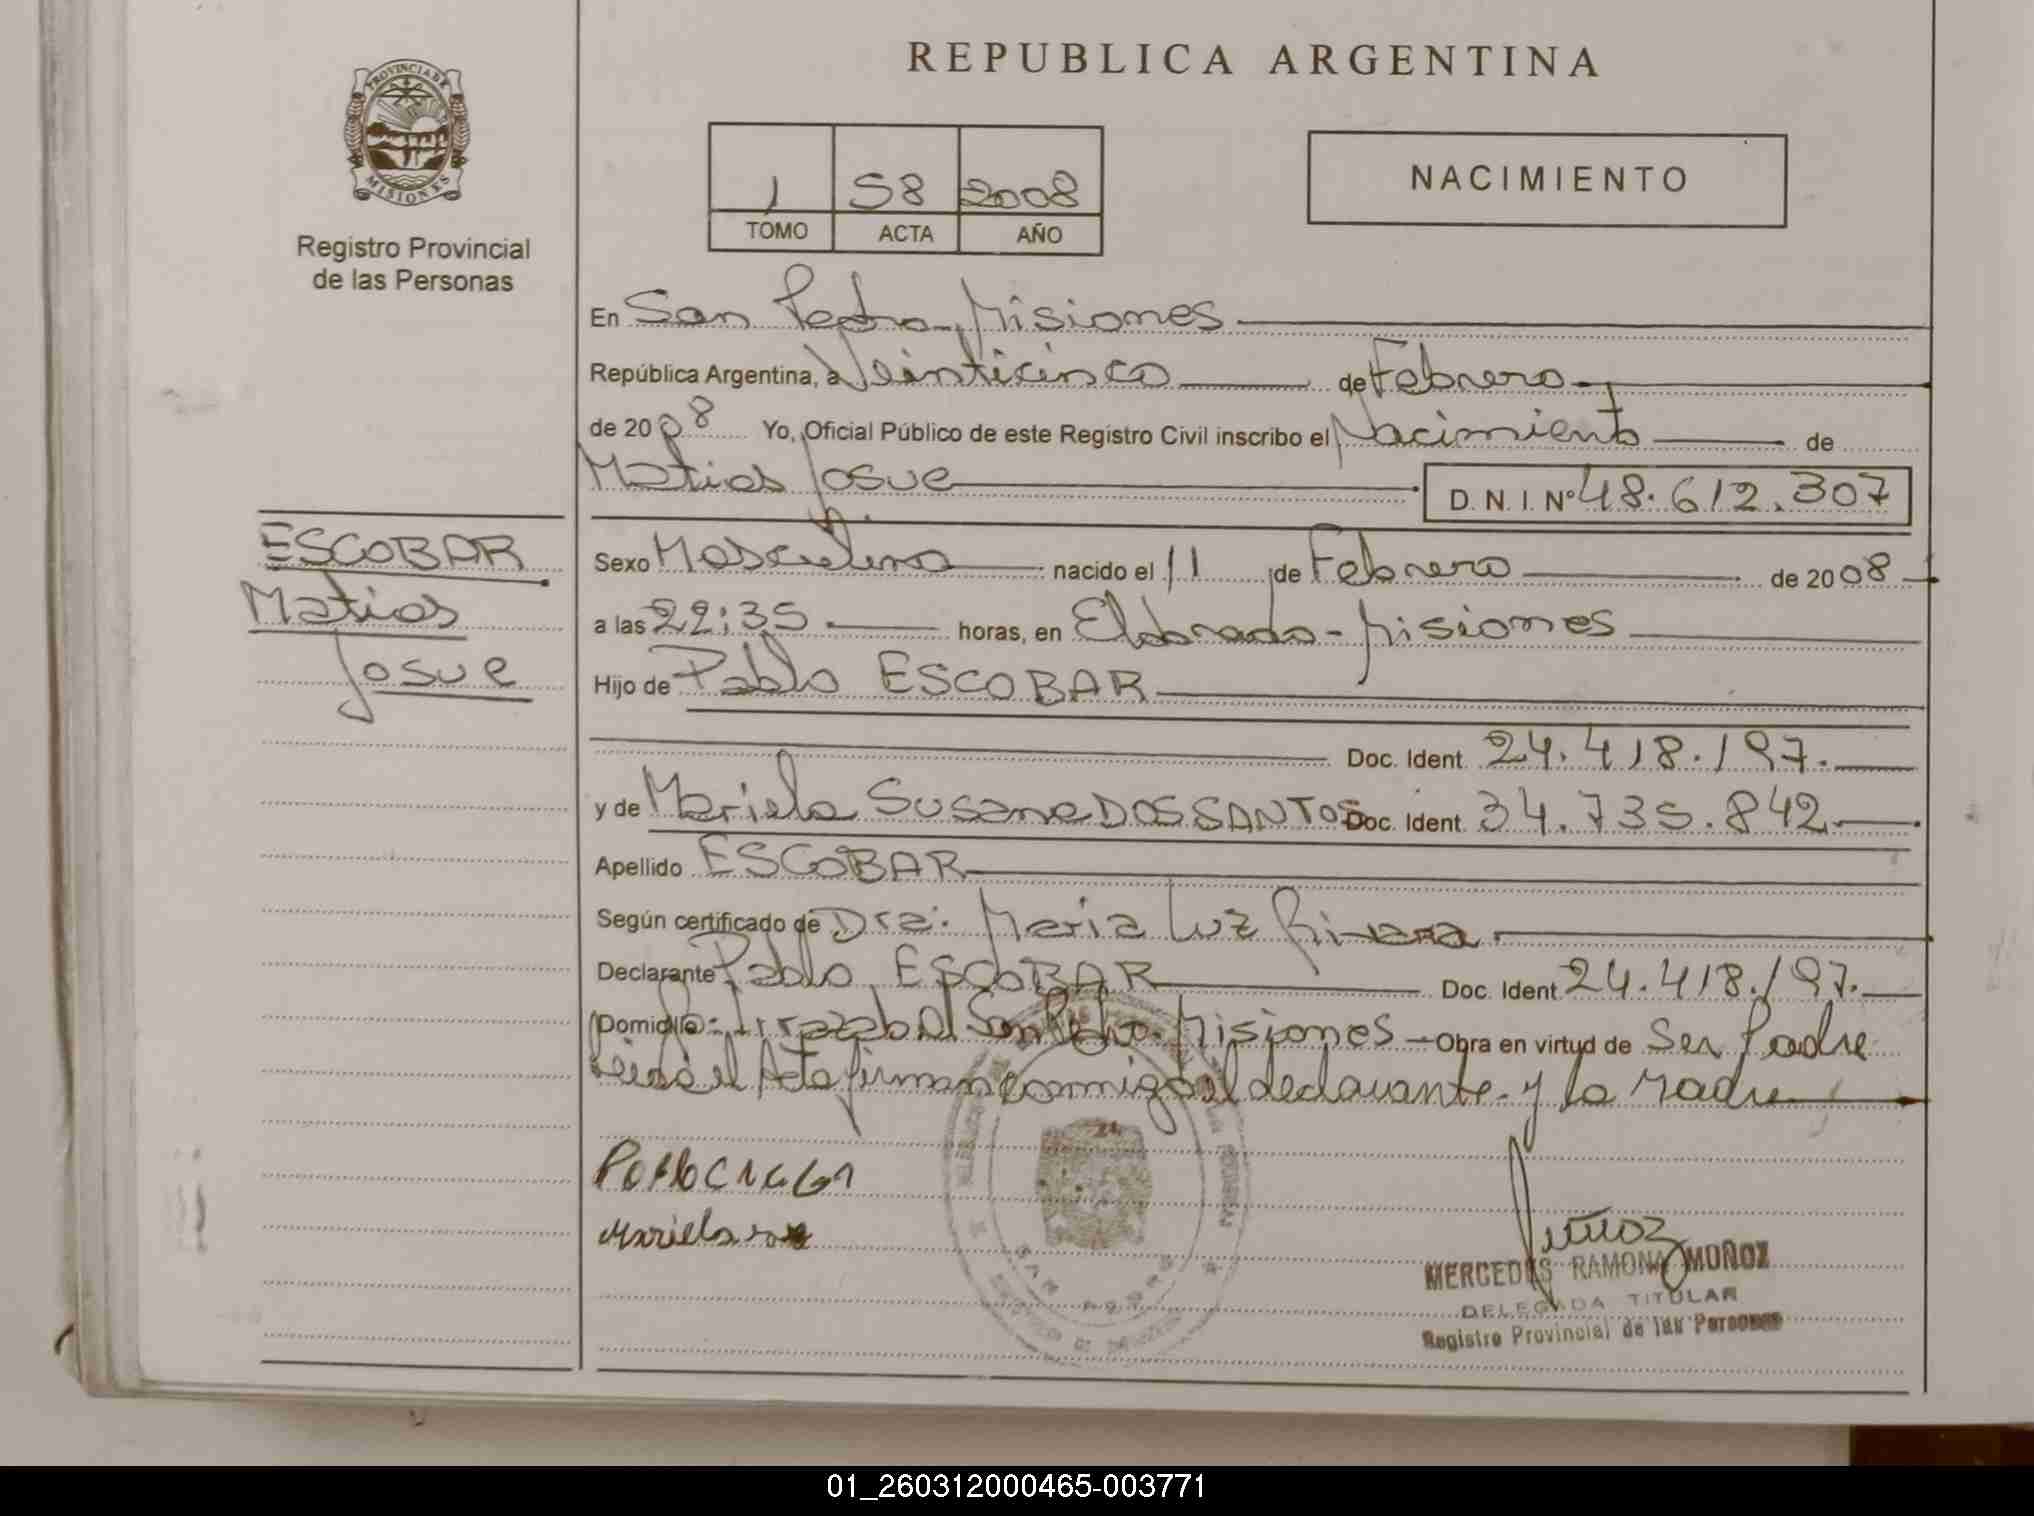 REPUBLICA ARGENTINA
PROVINCIA DE
MISIONES
Registro Provincial
de las Personas
1 58 2008
TOMO ACTA AÑO
NACIMIENTO
En San Pedro - Misiones
República Argentina, a Veinticinco de Febrero
de 2008 Yo, Oficial Público de este Registro Civil inscribo el Nacimiento de
Matias Josue D. N. I. Nº 48.612.307
ESCOBAR
Matias
Josue
Sexo Masculino nacido el 11 de Febrero de 2008
a las 22:35 horas, en Eldorado - Misiones
Hijo de Pablo ESCOBAR
Doc. Ident. 24.418.197.
y de Mariela Susana DOS SANTOS Doc. Ident. 34.735.842.
Apellido ESCOBAR
Según certificado de Dra. Maria Luz Rivara
Declarante Pablo ESCOBAR Doc. Ident. 24.418.197.
Domicilio San Pedro - Misiones - Obra en virtud de Ser Padre
Leida el Acta firman conmigo el declarante y la Madre
Mariela
Muñoz
MERCEDES RAMONA MUÑOZ
DELEGADA TITULAR
Registro Provincial de las Personas
SAN PEDRO
01_260312000465-003771